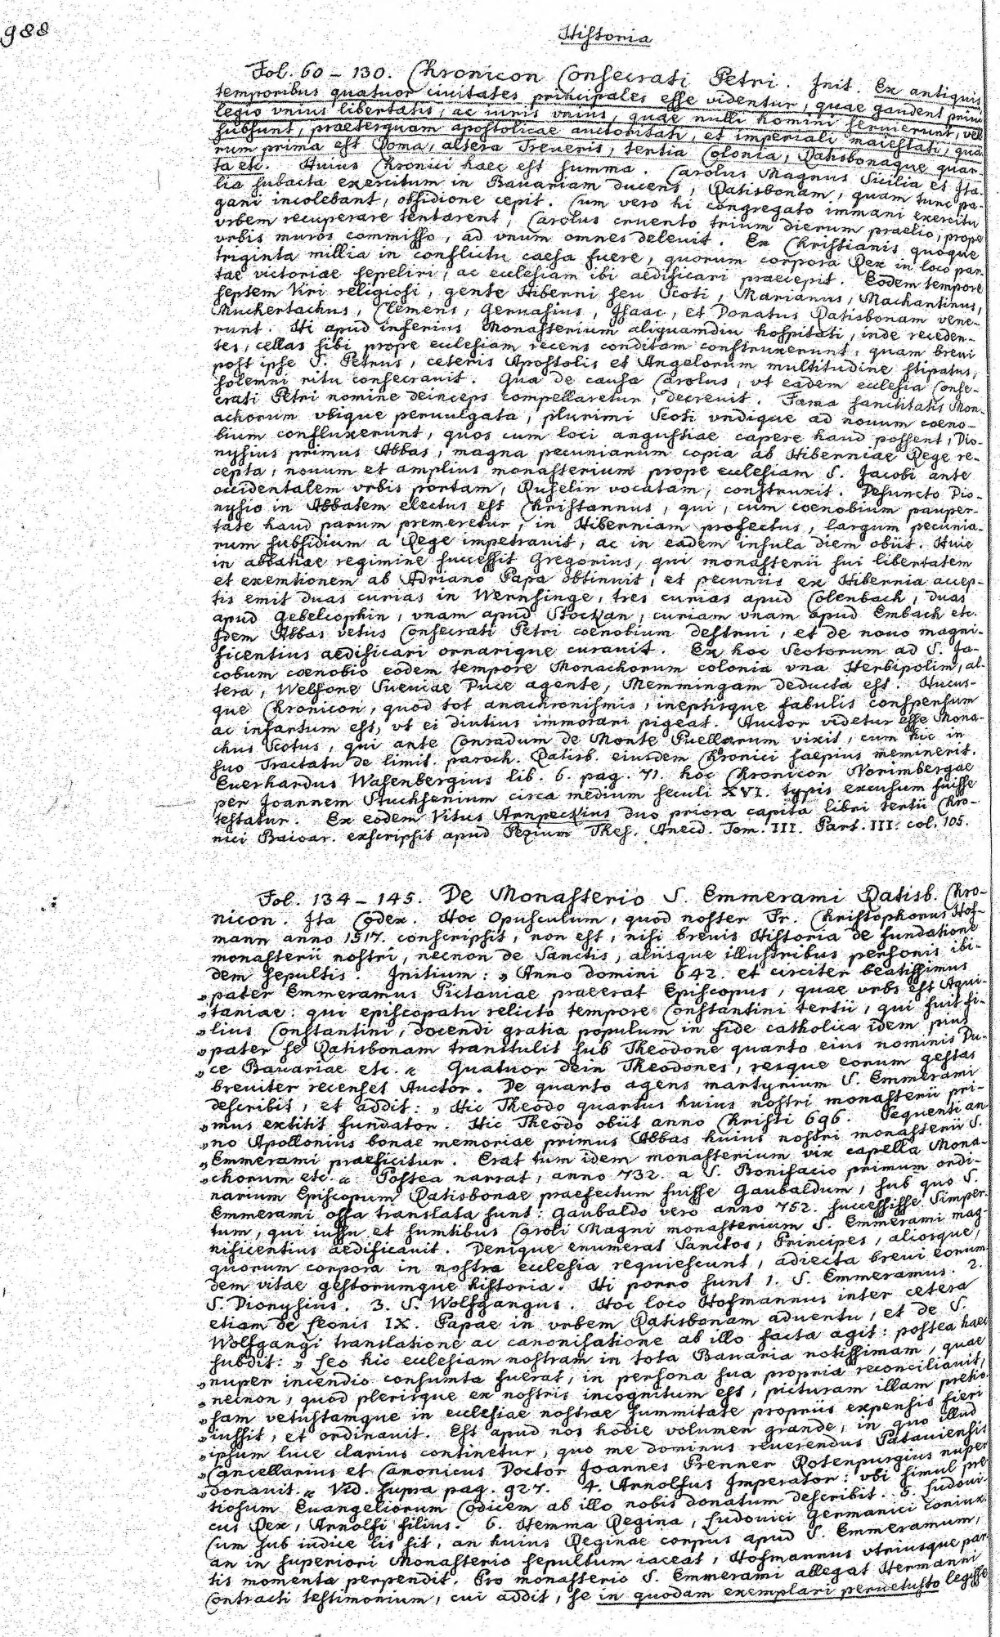 988
Historia
Fol. 60 – 130. Chronicon Consecrati Petri. Init. Ex antiquis
temporibus quatuor civitates principales esse videntur, quae gaudent privi
legio vnius libertatis, ac iuris vnius, quae nulli homini seruierunt, vel
subsunt, praeterquam apostolicae auctoritati, et imperiali maiestati, qua
rum prima est Roma, altera Treueris, tertia Colonia, Ratisbonaque quar-
ta etc. Huius Chronici haec est summa. Carolus Magnus Sicilia et Ita-
lia subacta exercitum in Bauariam ducens, Ratisbonam, quam tunc pa-
gani incolebant, obsidione cepit. Cum vero hi congregato immani exercitu
vrbem recuperare tentarent, Carolus cruento trium dierum praelio, prope
vrbis muros commisso, ad vnum omnes deleuit. Ex Christianis quoque
triginta millia in conflictu caesa fuere, quorum corpora Rex in loco par-
tae victoriae sepeliri, ac ecclesiam ibi aedificari praecepit. Eodem tempore
septem Viri religiosi, gente Hiberni seu Scoti, Marianus, Machantinus,
Muckertachus, Clemens, Geruasius, Isaac, et Donatus Ratisbonam vene-
runt. Hi apud inferius Monasterium aliquamdiu hospitati, inde receden-
tes, cellas sibi prope ecclesiam recens conditam construxerunt, quam breui
post ipse S. Petrus, ceteris Apostolis et Angelorum multitudine stipatus,
solemni ritu consecrauit. Qua de causa Carolus, vt eadem ecclesia Conse-
crati Petri nomine deinceps compellaretur, decreuit. Fama sanctitatis Mon-
achorum vbique peruulgata, plurimi Scoti vndique ad nouum coeno-
bium confluxerunt, quos cum loci angustiae capere haud possent, Dio-
nysius primus Abbas, magna pecuniarum copia ab Hiberniae Rege re-
cepta, nouum et amplius monasterium prope ecclesiam S. Jacobi ante
occidentalem vrbis portam, Ruselin vocatam, construxit. Defuncto Dio-
nysio in Abbatem electus est Christannus, qui, cum coenobium pauper-
tate haud parum premeretur, in Hiberniam profectus, largum pecunia-
rum subsidium a Rege impetrauit, ac in eadem insula diem obiit. Huic
in abbatiae regimine successit Gregorius, qui monasterii sui libertatem
et exemtionem ab Adriano Papa obtinuit, et pecuniis ex Hibernia accep-
tis emit duas curias in Wernsinge, tres curias apud Colenbach, duas
apud Gebelcophin, vnam apud Stockan, curiam vnam apud Embach etc.
Idem Abbas vetus Consecrati Petri coenobium destrui, et de nouo magni-
ficentius aedificari ornarique curauit. Ex hoc Scotorum ad S. Ja-
cobum coenobio eodem tempore Monachorum colonia vna Herbipolim, al-
tera, Welfone Sueuiae Duce agente, Memmingam deducta est. Hucus-
que Chronicon, quod tot anachronismis, ineptisque fabulis conspersum
ac infartum est, vt ei diutius immorari pigeat. Auctor videtur esse Mona-
chus Scotus, qui ante Conradum de Monte Puellarum vixit, cum hic in
suo Tractatu de limit. paroch. Ratisb. eiusdem Chronici saepius meminerit.
Euerhardus Wasenbergius lib. 6. pag. 71. hoc Chronicon Norimbergae
per Joannem Stuchsenium circa medium seculi XVI. typis excusum fuisse
testatur. Ex eodem Vitus Arnpeckius duo priora capita libri tertii Chro-
nici Baioar. exscripsit apud Pezium Thes. Anecd. Tom. III. Part. III. col. 105.
Fol. 134 – 145. De Monasterio S. Emmerami Ratisb. Chro-
nicon. Ita Codex. Hoc Opusculum, quod noster Fr. Christophorus Hof-
mann anno 1517. conscripsit, non est, nisi breuis Historia de fundatione
monasterii nostri, necnon de Sanctis, aliisque illustribus personis ibi-
dem sepultis. Initium: „ Anno domini 642. et circiter beatissimus
„ pater Emmeramus Pictauiae praeerat Episcopus, quae vrbs est Aqui-
„ taniae: qui episcopatu relicto tempore Constantini tertii, qui fuit fi-
„ lius Constantini, docendi gratia populum in fide catholica idem pius
„ pater se Ratisbonam transtulit sub Theodone quarto eius nominis Du-
„ ce Bauariae etc. “ Quatuor dein Theodones, resque eorum gestas
breuiter recenset Auctor. De quarto agens martyrium S. Emmerami
describit, et addit: „ Hic Theodo quartus huius nostri monasterii pri-
„ mus extitit fundator. Hic Theodo obiit anno Christi 696. Sequenti an
„ no Apollonius bonae memoriae primus Abbas huius nostri monasterii S.
„ Emmerami praeficitur. Erat tum idem monasterium vix capella Mona-
„ chorum etc. “ Postea narrat, anno 732. a S. Bonifacio primum ordi-
narium Episcopum Ratisbonae praefectum fuisse Gaubaldum, sub quo S.
Emmerami ossa translata sunt: Gaubaldo vero anno 752. successisse Simper-
tum, qui iussu et sumtibus Caroli Magni monasterium S. Emmerami mag
nificentius aedificauit. Denique enumerat Sanctos, Principes, aliosque,
quorum corpora in nostra ecclesia requiescunt, adiecta breui eorum-
dem vitae gestorumque historia. Hi porro sunt 1. S. Emmeramus. 2.
S. Dionysius. 3. S. Wolfgangus. Hoc loco Hofmannus inter cetera
etiam de Leonis IX. Papae in vrbem Ratisbonam aduentu, et de S.
Wolfgangi translatione ac canonisatione ab illo facta agit: postea haec
subdit: „ Leo hic ecclesiam nostram in tota Bauaria notissimam, quae
„ nuper incendio consumta fuerat, in persona sua propria reconciliauit,
„ necnon, quod plerisque ex nostris incognitum est, picturam illam pretio
„ sam vetustamque in ecclesiae nostrae summitate propriis expensis fieri
„ iussit, et ordinauit. Est apud nos hodie volumen grande, in quo illud
„ ipsum luce clarius continetur, quo me dominus reuerendus Patauiensis
„ Cancellarius et Canonicus Doctor Joannes Prenner Rotenpurgius nuper
„ donauit. “ Vid. supra pag. 927. 4. Arnolfus Imperator: vbi simul pre
tiosum Euangeliorum Codicem ab illo nobis donatum describit. 5. Ludoui-
cus Rex, Arnolfi filius. 6. Hemma Regina, Ludouici Germanici coniux.
Cum sub iudice lis sit, an huius Reginae corpus apud S. Emmeramum,
an in superiori Monasterio sepultum iaceat, Hofmannus vtriusque par
tis momenta perpendit. Pro monasterio S. Emmerami allegat Hermanni
Contracti testimonium, cui addit, se in quodam exemplari peruetusto legisse